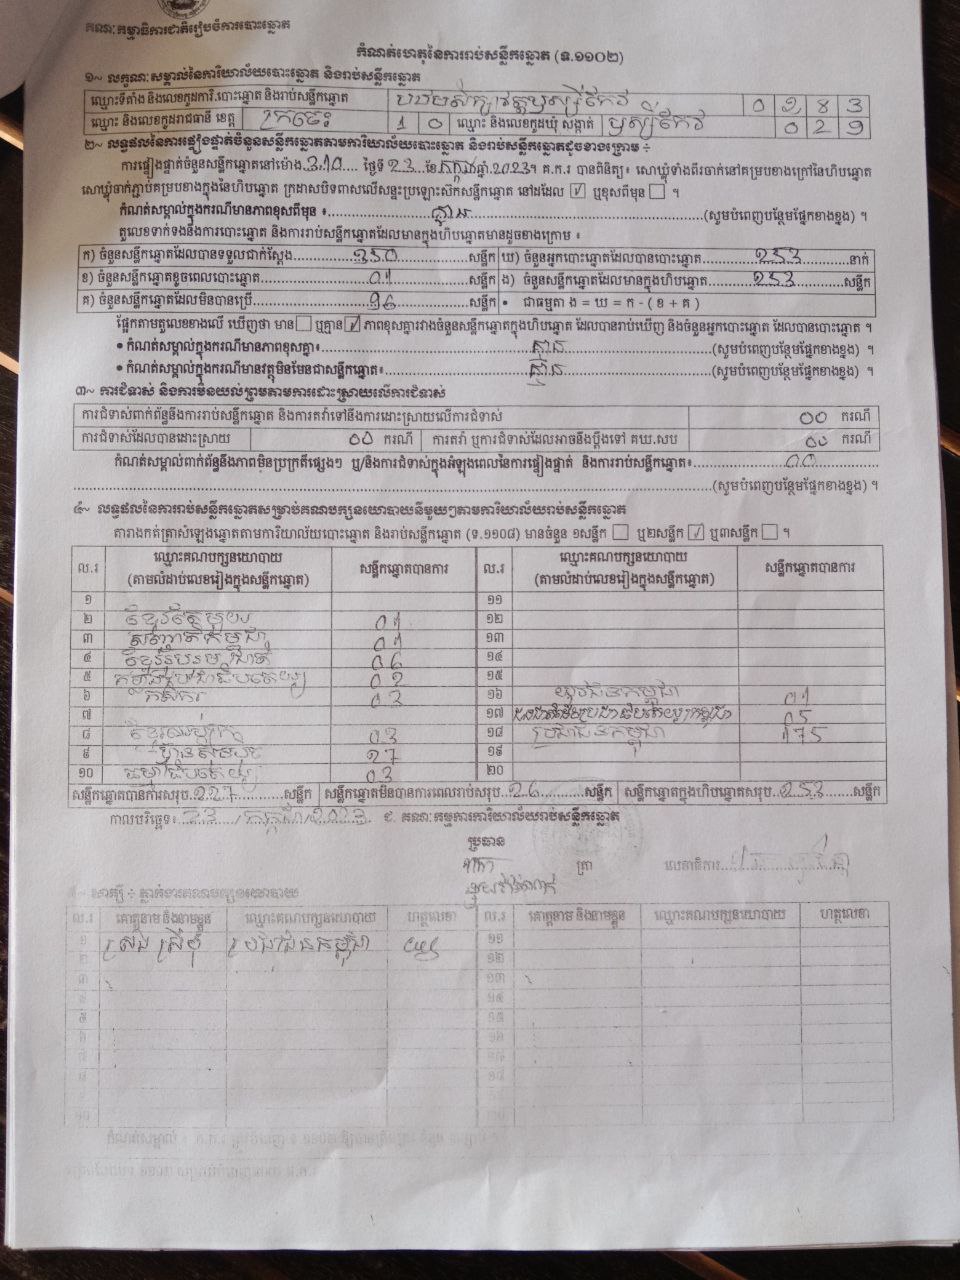 គណៈកម្មាធិការជាតិរៀបចំការបោះឆ្នោត
កំណត់ហេតុនៃការរាប់សន្លឹកឆ្នោត (ទ.១១០២)
១~ លក្ខណៈសម្គាល់នៃការិយាល័យបោះឆ្នោត និងរាប់សន្លឹកឆ្នោត
ឈ្មោះទីតាំង និងលេខកូដការិ.បោះឆ្នោត និងរាប់សន្លឹកឆ្នោត 0 2 8 3
ឈ្មោះ និងលេខកូដរាជធានី ខេត្ត ក្រចេះ 1 0 ឈ្មោះ និងលេខកូដឃុំ សង្កាត់ ឫស្សីកែវ 0 2 9
២~ លទ្ធផលនៃការផ្ទៀងផ្ទាត់ចំនួនសន្លឹកឆ្នោតតាមការិយាល័យបោះឆ្នោត និងរាប់សន្លឹកឆ្នោតដូចខាងក្រោម ÷
ការផ្ទៀងផ្ទាត់ចំនួនសន្លឹកឆ្នោតនៅម៉ោង 3.10 ថ្ងៃទី 23 ខែ កក្កដា ឆ្នាំ 2023។ គ.ក.រ បានពិនិត្យ៖ សោឃ្លុំទាំងពីរចាក់នៅគម្របខាងក្រៅនៃហិបឆ្នោត
សោឃ្លុំចាក់ភ្ជាប់គម្របខាងក្នុងនៃហិបឆ្នោត ក្រដាសបិទពាសលើសន្ទះប្រឡោះស៊កសន្លឹកឆ្នោត នៅដដែល ☑ ឬខុសពីមុន ☐ ។
កំណត់សម្គាល់ក្នុងករណីមានភាពខុសពីមុន ៖ គ្មាន (សូមបំពេញបន្ថែមផ្នែកខាងខ្នង) ។
តួលេខទាក់ទងនឹងការបោះឆ្នោត និងការរាប់សន្លឹកឆ្នោតដែលមានក្នុងហិបឆ្នោតមានដូចខាងក្រោម ៖
ក) ចំនួនសន្លឹកឆ្នោតដែលបានទទួលជាក់ស្ដែង 350 សន្លឹក ឃ) ចំនួនអ្នកបោះឆ្នោតដែលបានបោះឆ្នោត 253 នាក់
ខ) ចំនួនសន្លឹកឆ្នោតខូចពេលបោះឆ្នោត 01 សន្លឹក ង) ចំនួនសន្លឹកឆ្នោតដែលមានក្នុងហិបឆ្នោត 253 សន្លឹក
គ) ចំនួនសន្លឹកឆ្នោតដែលមិនបានប្រើ 96 សន្លឹក • ជាធម្មតា ង = ឃ = ក - ( ខ + គ )
ផ្អែកតាមតួលេខខាងលើ ឃើញថា មាន ☐ ឬគ្មាន ☑ ភាពខុសគ្នារវាងចំនួនសន្លឹកឆ្នោតក្នុងហិបឆ្នោត ដែលបានរាប់ឃើញ និងចំនួនអ្នកបោះឆ្នោត ដែលបានបោះឆ្នោត ។
• កំណត់សម្គាល់ក្នុងករណីមានភាពខុសគ្នា៖ គ្មាន (សូមបំពេញបន្ថែមផ្នែកខាងខ្នង) ។
• កំណត់សម្គាល់ក្នុងករណីមានវត្ថុមិនមែនជាសន្លឹកឆ្នោត៖ គ្មាន (សូមបំពេញបន្ថែមផ្នែកខាងខ្នង) ។
៣~ ការជំទាស់ និងការមិនយល់ព្រមតាមការដោះស្រាយលើការជំទាស់
ការជំទាស់ពាក់ព័ន្ធនឹងការរាប់សន្លឹកឆ្នោត និងការតវ៉ាទៅនឹងការដោះស្រាយលើការជំទាស់ 00 ករណី
ការជំទាស់ដែលបានដោះស្រាយ 00 ករណី ការតវ៉ា ឬការជំទាស់ដែលអាចនឹងប្ដឹងទៅ គឃ.សប 00 ករណី
កំណត់សម្គាល់ពាក់ព័ន្ធនឹងភាពមិនប្រក្រតីផ្សេងៗ ឬ/និងការជំទាស់ក្នុងអំឡុងពេលនៃការផ្ទៀងផ្ទាត់ និងការរាប់សន្លឹកឆ្នោត៖ 00
(សូមបំពេញបន្ថែមផ្នែកខាងខ្នង) ។
៤~ លទ្ធផលនៃការរាប់សន្លឹកឆ្នោតសម្រាប់គណបក្សនយោបាយនីមួយៗតាមការិយាល័យរាប់សន្លឹកឆ្នោត
តារាងកត់ត្រាសំឡេងឆ្នោតតាមការិយាល័យបោះឆ្នោត និងរាប់សន្លឹកឆ្នោត (ទ.១១០៨) មានចំនួន ១សន្លឹក ☐ ឬ២សន្លឹក ☑ ឬ៣សន្លឹក ☐ ។
ល.រ ឈ្មោះគណបក្សនយោបាយ សន្លឹកឆ្នោតបានការ ល.រ ឈ្មោះគណបក្សនយោបាយ សន្លឹកឆ្នោតបានការ
(តាមលំដាប់លេខរៀងក្នុងសន្លឹកឆ្នោត) (តាមលំដាប់លេខរៀងក្នុងសន្លឹកឆ្នោត)
១ ១១
២ ខ្មែរតែមួយ 01 ១២
៣ សញ្ជាតិកម្ពុជា 01 ១៣
៤ ខ្មែររួបរួមជាតិ 06 ១៤
៥ 02 ១៥
៦ កសិករ 03 ១៦ យុវជនកម្ពុជា 01
៧ ១៧ 05
៨ 03 ១៨ ប្រជាជនកម្ពុជា 175
៩ 27 ១៩
១០ ធម្មាធិបតេយ្យ 03 ២០
សន្លឹកឆ្នោតបានការសរុប 227 សន្លឹក សន្លឹកឆ្នោតមិនបានការពេលរាប់សរុប 26 សន្លឹក សន្លឹកឆ្នោតក្នុងហិបឆ្នោតសរុប 253 សន្លឹក
កាលបរិច្ឆេទ៖ 23 / កក្កដា / 2023 ៩. គណៈកម្មការការិយាល័យរាប់សន្លឹកឆ្នោត
ប្រធាន
ត្រា លេខាធិការ
៥~ សាក្សី ÷ ភ្នាក់ងារគណបក្សនយោបាយ
ល.រ គោត្តនាម និងនាមខ្លួន ឈ្មោះគណបក្សនយោបាយ ហត្ថលេខា ល.រ គោត្តនាម និងនាមខ្លួន ឈ្មោះគណបក្សនយោបាយ ហត្ថលេខា
១ ប្រជាជនកម្ពុជា ១១
២ ១២
៣ ១៣
៤ ១៤
៥ ១៥